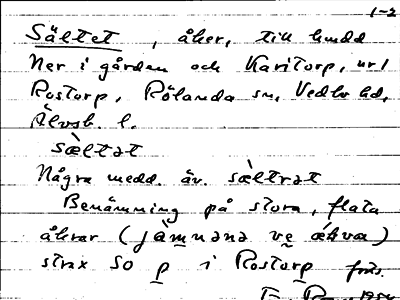 1-2
Sältet, åker, till hmdd
Ner i gården och Karitorp, ur 1
Rostorp, Rölanda sn, Vedbo hd,
Älvsb. l.
sæ̀ltət
Några medd. äv. sæ̀ltrət
Benämning på stora, flata
åkrar (jämnənə ve åkva)
strax SO p i Rostorp
1954